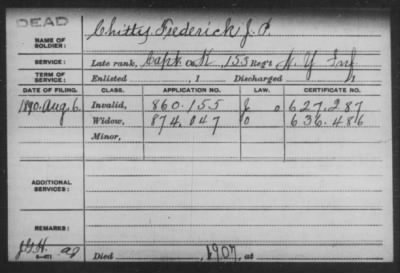 DEAD
NAME OF SOLDIER: Chitty, Frederick J. P.
SERVICE: Late rank, Capt. Co. K, 153 Reg't N. Y. Inf.
TERM OF SERVICE: Enlisted , 1 Discharged , 1
DATE OF FILING. CLASS. APPLICATION NO. LAW. CERTIFICATE NO.
1890. Aug. 6. Invalid, 860.155 627.287
Widow, 874.047 636.486
Minor,
ADDITIONAL SERVICES:
REMARKS:
Died , 1907, at